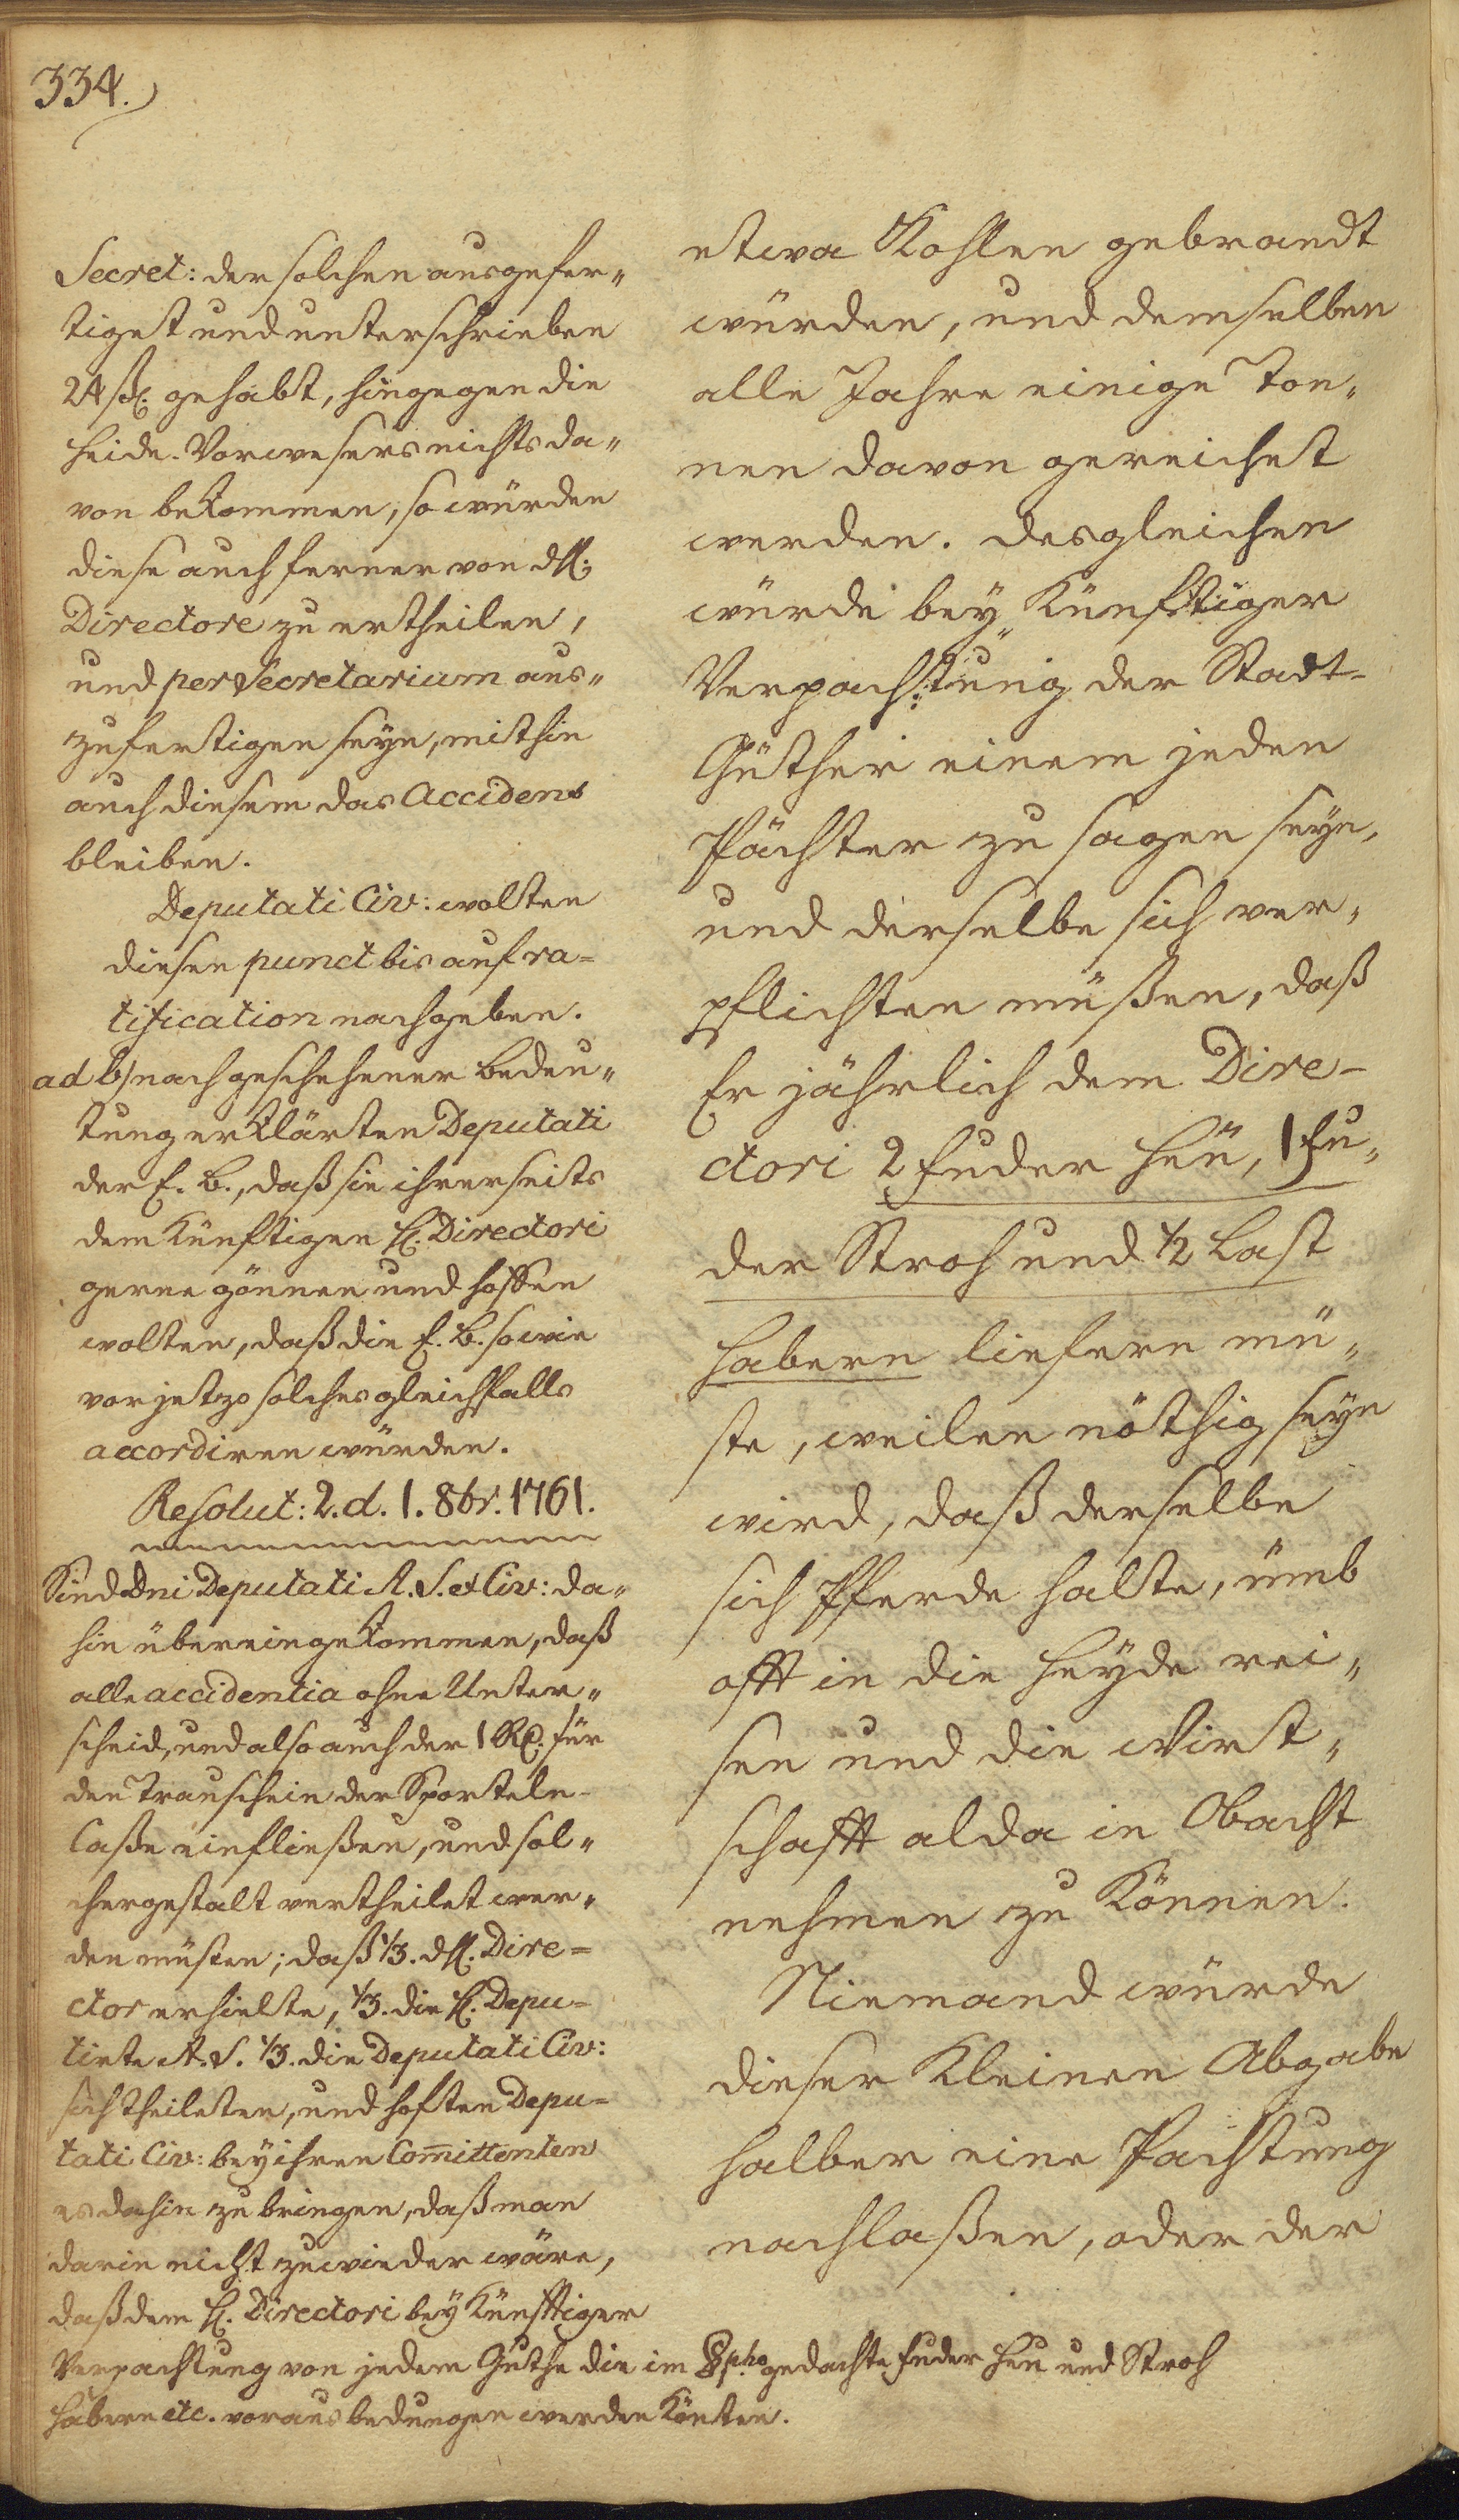 334.)
Secret: der solchen ausgefer„
tiget und unterschrieben
24 ßl. gehabt, hingegen die
Heide-Vorwesers nichts da„
von bekommen, so würden
diese auch ferner von dH.
Directore zu ertheilen,
und per Secretarium aus„
zufertigen seyn, mithin
auch diesem das Accidens
bleiben.
Deputati Civ: wolten
diesen punct bis auf ra=
tification nachgeben.
ad b) nach geschehener Bedeu„
tung erklärten Deputati
der E. B., daß sie ihrerseits
dem künftigen H. Directori
gerne gönnen und hoffen
wolten, daß die E. B. so wie
vor jetzo solches gleichfalls
accordiren würden.
Resolut: 2. d. 1. 8br. 1761.
Sind Dni Deputati A. S. et Civ: da„
hin übereingekommen, daß
alle accidentia ohne Unter„
scheid, und also auch der 1 Rl. für
den Trauschein der Sporteln-
Caße einfließen, und sol„
chergestalt vertheilet wer„
den müsten; daß 1/3. dH. Dire=
ctor erhielte, 1/3. die H. Depu=
tirte A. S. 1/3. die Deputati Civ:
sich theileten, und hoften Depu=
tati Civ: bey ihren Com̅ittenten
es dahin zu bringen, daß man
darin nicht zuwieder wäre,
daß dem H. Directori bey künfftiger
Verpachtung von jedem Guthe die im §pho gedachte Fuder Heu und Stroh
Habern etc. voraus bedungen werden könten.
etwa Kohlen gebrandt
würden, und demselben
alle Jahre einige Ton„
nen davon gereichet
werden. Desgleichen
würde bey künftiger
Verpachtung der Stadt-
Güther einem jeden
Pächter zu sagen seyn,
und derselbe sich ver„
pflichten müßen, daß
Er jährlich dem Dire-
ctori 2 Fuder Heu, 1 Fu„
der Stroh und 1/2 Last
Habern liefern mü„
ste, weilen nöthig seyn
wird, daß derselbe
sich Pferde halte, umb
offt in die Heyde rei„
sen und die Wirt„
schafft alda in Obacht
nehmen zu können.
Niemand würde
dieser kleinen Abgabe
halber eine Pachtung
nachlaßen, oder der